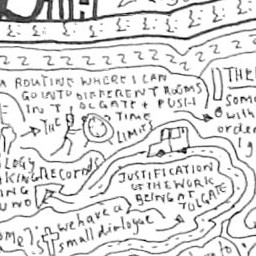 A ROUTINE WHERE I CAN
GO INTO DIFFERENT ROOMS
IN TOLGATE + PUSH
THE
TIME
LIMITS
THE
SOME
with
order
KING RECORDS
JUSTIFICATION
OF THE WORK
BEING AT
TOLGATE
we have a
small dialogue